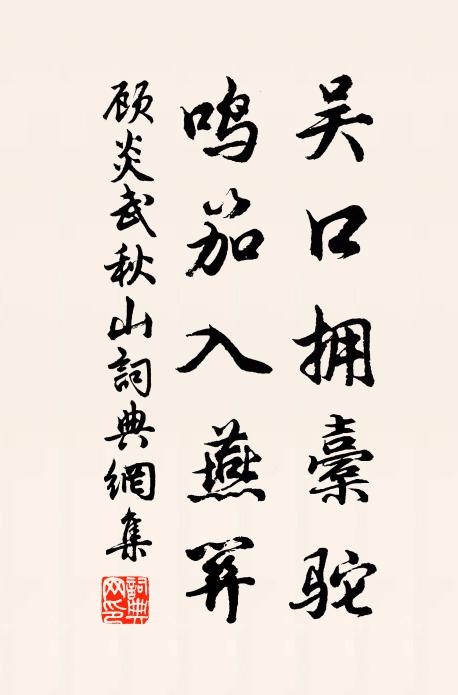 吴口拥橐驼
鸣笳入燕关
顾炎武秋山詞典網集
詞典网印